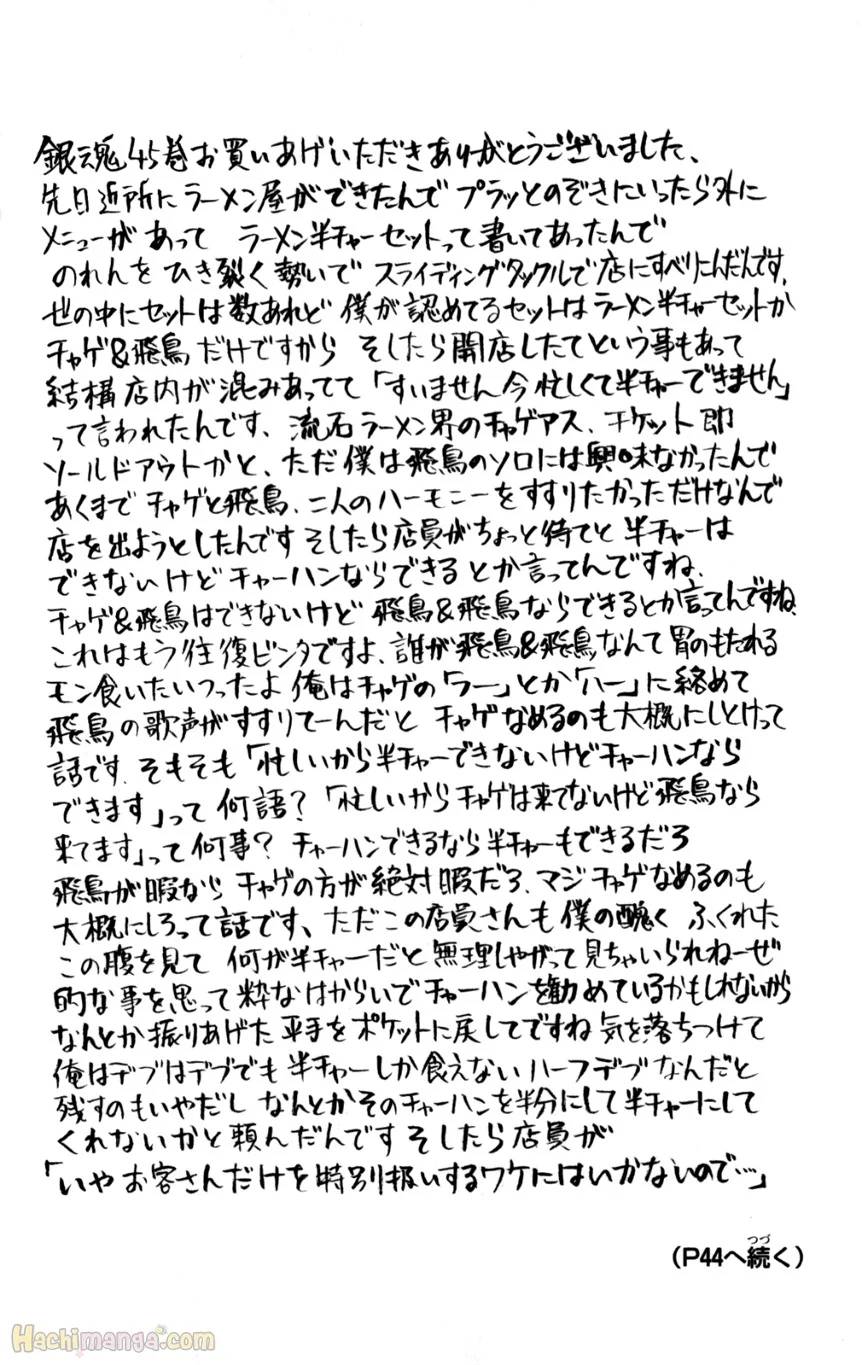 銀魂45巻お買いあげいただきありがとうございました、
先日近所にラーメン屋ができたんで プラッとのぞきにいったら外に
メニューがあって ラーメン半チャーセットって書いてあったんで
のれんを ひき裂く勢いで スライディングタックルで店にすべりこんだんです、
世の中にセットは数あれど 僕が認めてるセットはラーメン半チャーセットか
チャゲ&飛鳥だけですから そしたら開店したてという事もあって
結構店内が混みあってて「すいません今忙しくて半チャーできません」
って言われたんです、流石ラーメン界のチャゲアス、チケット即
ソールドアウトかと、ただ僕は飛鳥のソロには興味なかったんで
あくまでチャゲと飛鳥、二人のハーモニーをすすりたかっただけなんで
店を出ようとしたんです そしたら店員がちょっと待てと 半チャーは
できないけど チャーハンならできるとか言ってんですね、
チャゲ&飛鳥はできないけど 飛鳥&飛鳥ならできるとか言ってんですね、
これはもう往復ビンタですよ、誰が飛鳥&飛鳥なんて胃のもたれる
モン食いたいつったよ 俺はチャゲの「ラー」とか「ハー」に絡めて
飛鳥の歌声がすすりてーんだと チャゲなめるのも大概にしとけって
話です、そもそも「忙しいから半チャーできないけどチャーハンなら
できます」って何語?「忙しいからチャゲは来てないけど飛鳥なら
来てます」って何事? チャーハンできるなら半チャーもできるだろ
飛鳥が暇なら チャゲの方が絶対暇だろ、マジチャゲなめるのも
大概にしろって話です、ただこの店員さんも僕の醜く ふくれた
この腹を見て 何が半チャーだと無理しやがって見ちゃいられねーぜ
的な事を思って粋なはからいでチャーハンを勧めているかもしれないから
なんとか振りあげた平手をポケットに戻してですね 気を落ちつけて
俺はデブはデブでも半チャーしか食えないハーフデブなんだと
残すのもいやだし なんとかそのチャーハンを半分にして半チャーにして
くれないかと頼んだんです そしたら店員が
「いやお客さんだけを特別扱いするワケにはいかないので…」
(P44へ続く)
つづ
Hachimanga.com